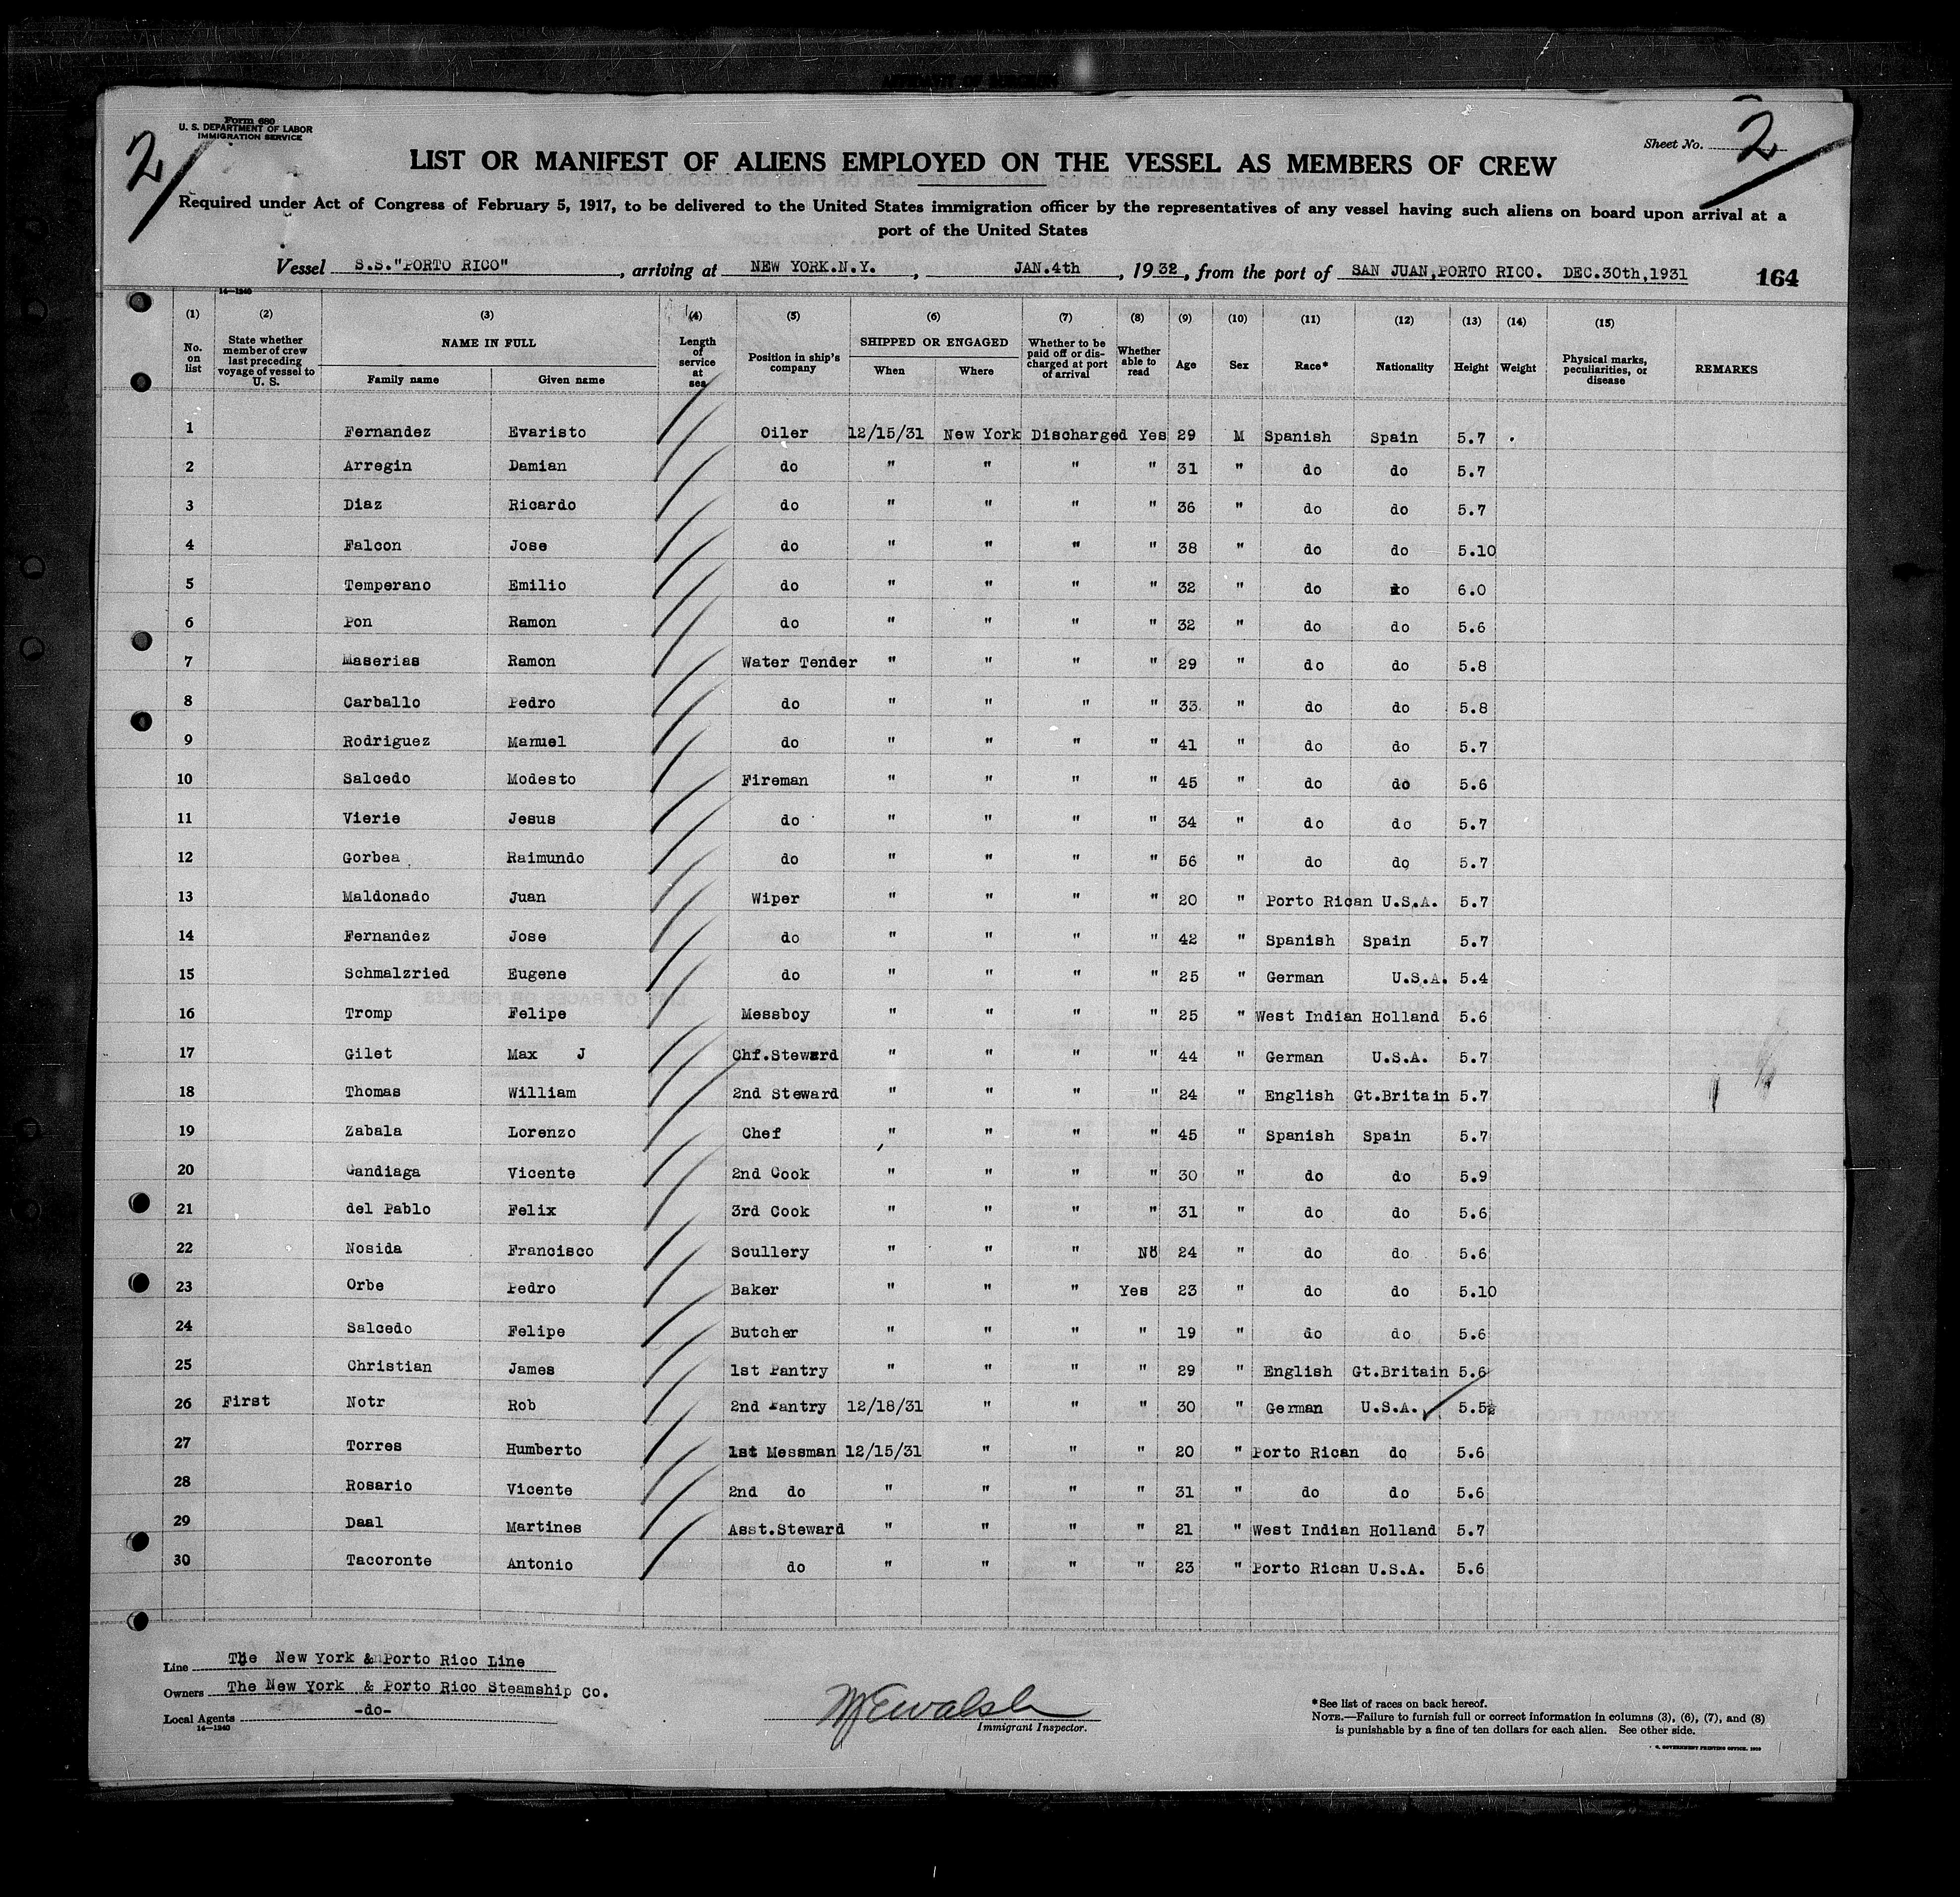 Form 680
U. S. DEPARTMENT OF LABOR
IMMIGRATION SERVICE
2
Sheet No. 2
LIST OR MANIFEST OF ALIENS EMPLOYED ON THE VESSEL AS MEMBERS OF CREW
Required under Act of Congress of February 5, 1917, to be delivered to the United States immigration officer by the representatives of any vessel having such aliens on board upon arrival at a
port of the United States
Vessel S.S."PORTO RICO", arriving at NEW YORK.N.Y., JAN.4th, 1932, from the port of SAN JUAN,PORTO RICO. DEC.30th,1931 164
14—1240
(1) (2) (3) (4) (5) (6) (7) (8) (9) (10) (11) (12) (13) (14) (15)
No. on list State whether member of crew last preceding voyage of vessel to U. S. NAME IN FULL Family name Given name Length of service at sea Position in ship's company SHIPPED OR ENGAGED When Where Whether to be paid off or discharged at port of arrival Whether able to read Age Sex Race* Nationality Height Weight Physical marks, peculiarities, or disease REMARKS
1 Fernandez Evaristo Oiler 12/15/31 New York Discharged Yes 29 M Spanish Spain 5.7
2 Arregin Damian do " " " " 31 " do do 5.7
3 Diaz Ricardo do " " " " 36 " do do 5.7
4 Falcon Jose do " " " " 38 " do do 5.10
5 Temperano Emilio do " " " " 32 " do do 6.0
6 Pon Ramon do " " " " 32 " do do 5.6
7 Maserias Ramon Water Tender " " " " 29 " do do 5.8
8 Carballo Pedro do " " " " 33 " do do 5.8
9 Rodriguez Manuel do " " " " 41 " do do 5.7
10 Salcedo Modesto Fireman " " " " 45 " do do 5.6
11 Vierie Jesus do " " " " 34 " do do 5.7
12 Gorbea Raimundo do " " " " 56 " do do 5.7
13 Maldonado Juan Wiper " " " " 20 " Porto Rican U.S.A. 5.7
14 Fernandez Jose do " " " " 42 " Spanish Spain 5.7
15 Schmalzried Eugene do " " " " 25 " German U.S.A. 5.4
16 Tromp Felipe Messboy " " " " 25 " West Indian Holland 5.6
17 Gilet Max J Chf.Steward " " " " 44 " German U.S.A. 5.7
18 Thomas William 2nd Steward " " " " 24 " English Gt.Britain 5.7
19 Zabala Lorenzo Chef " " " " 45 " Spanish Spain 5.7
20 Gandiaga Vicente 2nd Cook " " " " 30 " do do 5.9
21 del Pablo Felix 3rd Cook " " " " 31 " do do 5.6
22 Nosida Francisco Scullery " " " No 24 " do do 5.6
23 Orbe Pedro Baker " " " Yes 23 " do do 5.10
24 Salcedo Felipe Butcher " " " " 19 " do do 5.6
25 Christian James 1st Pantry " " " " 29 " English Gt.Britain 5.6
26 First Notr Rob 2nd Pantry 12/18/31 " " " 30 " German U.S.A. 5.5½
27 Torres Humberto 1st Messman 12/15/31 " " " 20 " Porto Rican do 5.6
28 Rosario Vicente 2nd do " " " " 31 " do do 5.6
29 Daal Martines Asst.Steward " " " " 21 " West Indian Holland 5.7
30 Tacoronte Antonio do " " " " 23 " Porto Rican U.S.A. 5.6
Line The New York & Porto Rico Line
Owners The New York & Porto Rico Steamship Co.
Local Agents -do-
14—1240
Immigrant Inspector.
*See list of races on back hereof.
NOTE.—Failure to furnish full or correct information in columns (3), (6), (7), and (8)
is punishable by a fine of ten dollars for each alien. See other side.